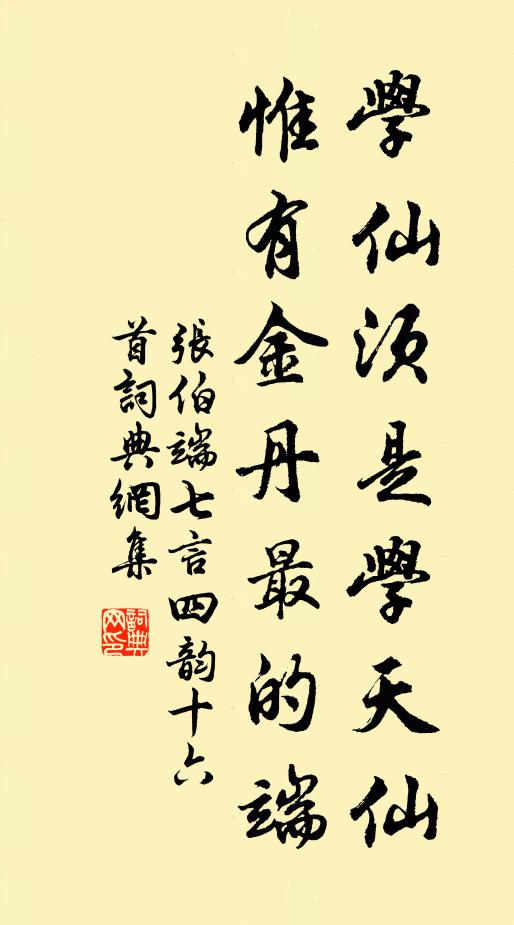 學仙須是學天仙
惟有金丹最的端
張伯端七言四韵十六
首詞典網集
詞典
网印